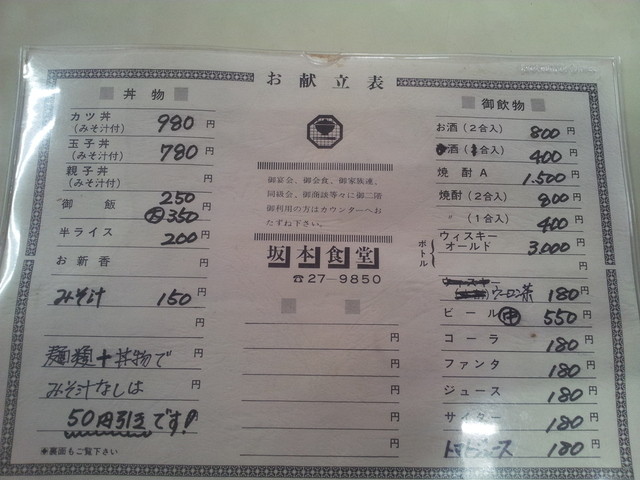 お献立表
丼物
カツ丼
(みそ汁付) 980 円
玉子丼
(みそ汁付) 780 円
親子丼
(みそ汁付) 円
御飯 250
大 350 円
半ライス 200 円
お新香 円
みそ汁 150 円
円
麺類+丼物で 円
みそ汁なしは 円
50円引きです! 円
※裏面もご覧下さい
御宴会、御会食、御家族連、
同級会、御商談等々に御二階
御利用の方はカウンターへお
たずね下さい。
坂本食堂
☎27-9850
円
円
円
円
円
御飲物
お酒(2合入) 800 円
酒(1合入) 400 円
焼酎A 1.500 円
焼酎(2合入) 800 円
〃(1合入) 400 円
ボトル
ウィスキー
オールド 3,000 円
円
ウーロン茶 180 円
ビール 中 550 円
コーラ 180 円
ファンタ 180 円
ジュース 180 円
サイダー 180 円
トマトジュース 180 円